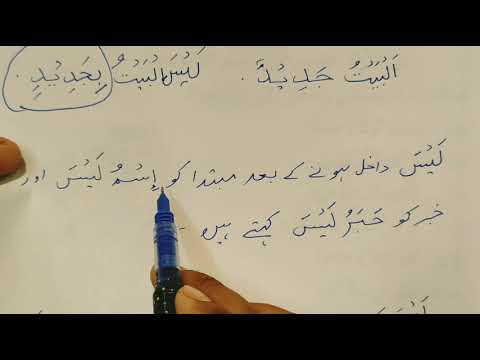 اَلْبَيْتُ جَدِيْدٌ . لَيْسَ الْبَيْتُ بِجَدِيْدٍ .
لَيْسَ داخل ہونے کے بعد مبتدا کو اِسْمُ لَيْسَ اور
خبر کو خَبَرُ لَيْسَ کہتے ہیں ۔